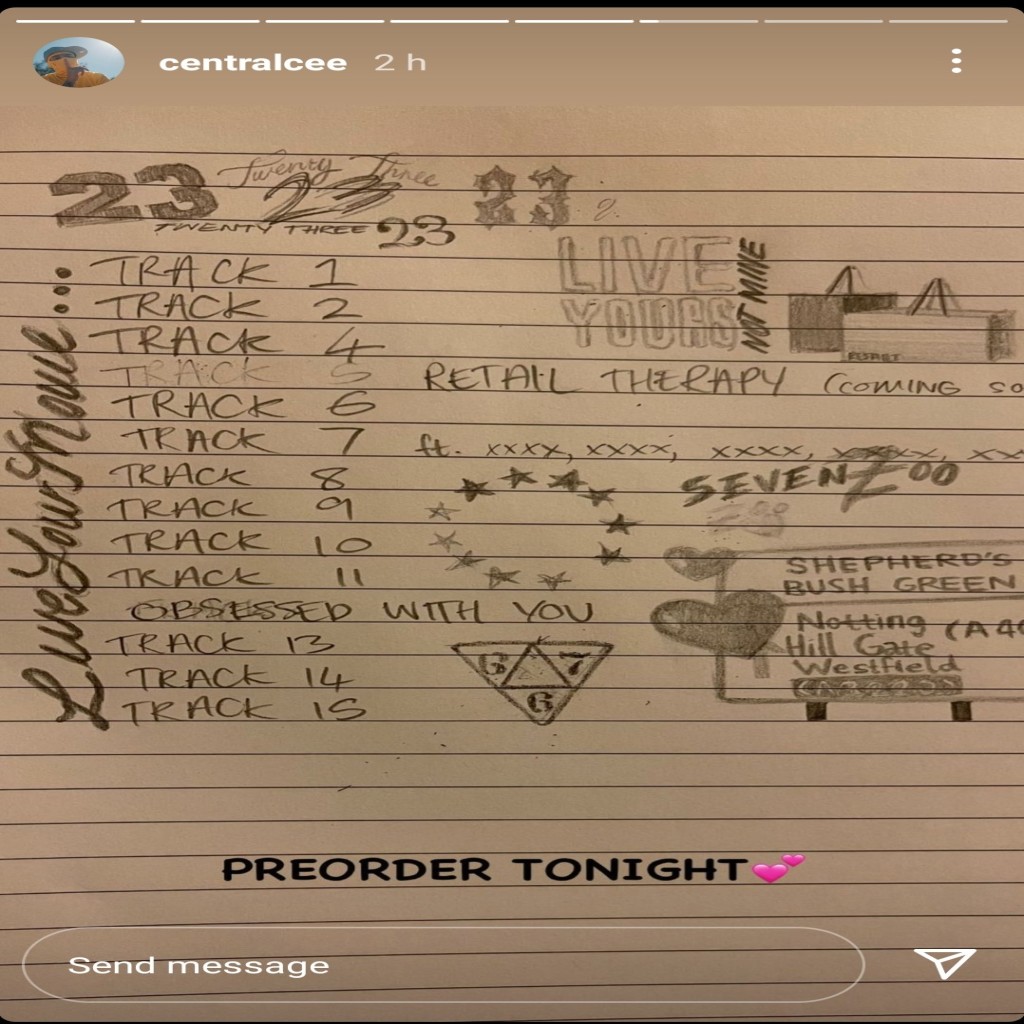 centralcee 2 h
23 Twenty Three 23 23
TWENTY THREE 23
LIVE
YOURS
NOT MINE
Live Yours Mine...
TRACK 1
TRACK 2
TRACK 4
TRACK 5 RETAIL THERAPY (COMING SO
TRACK 6
TRACK 7 ft. xxxx, xxxx, xxxx, xxxx, xx
TRACK 8
SEVEN Zoo
TRACK 9
TRACK 10
TRACK 11
OBSESSED WITH YOU
TRACK 13
TRACK 14
TRACK 15
6 7
6
SHEPHERD'S
BUSH GREEN
Notting (A 40
Hill Gate
Westfield
PREORDER TONIGHT💕
Send message